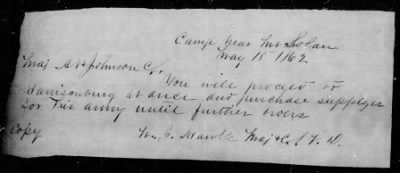 Camp near Mt Solan
May 18 1862
Maj A H Johnson C,,
You will proceed to
at once and purchase supplyes
for this army until further orders
Copy W. J. Hawks Maj & C. S. V. D.